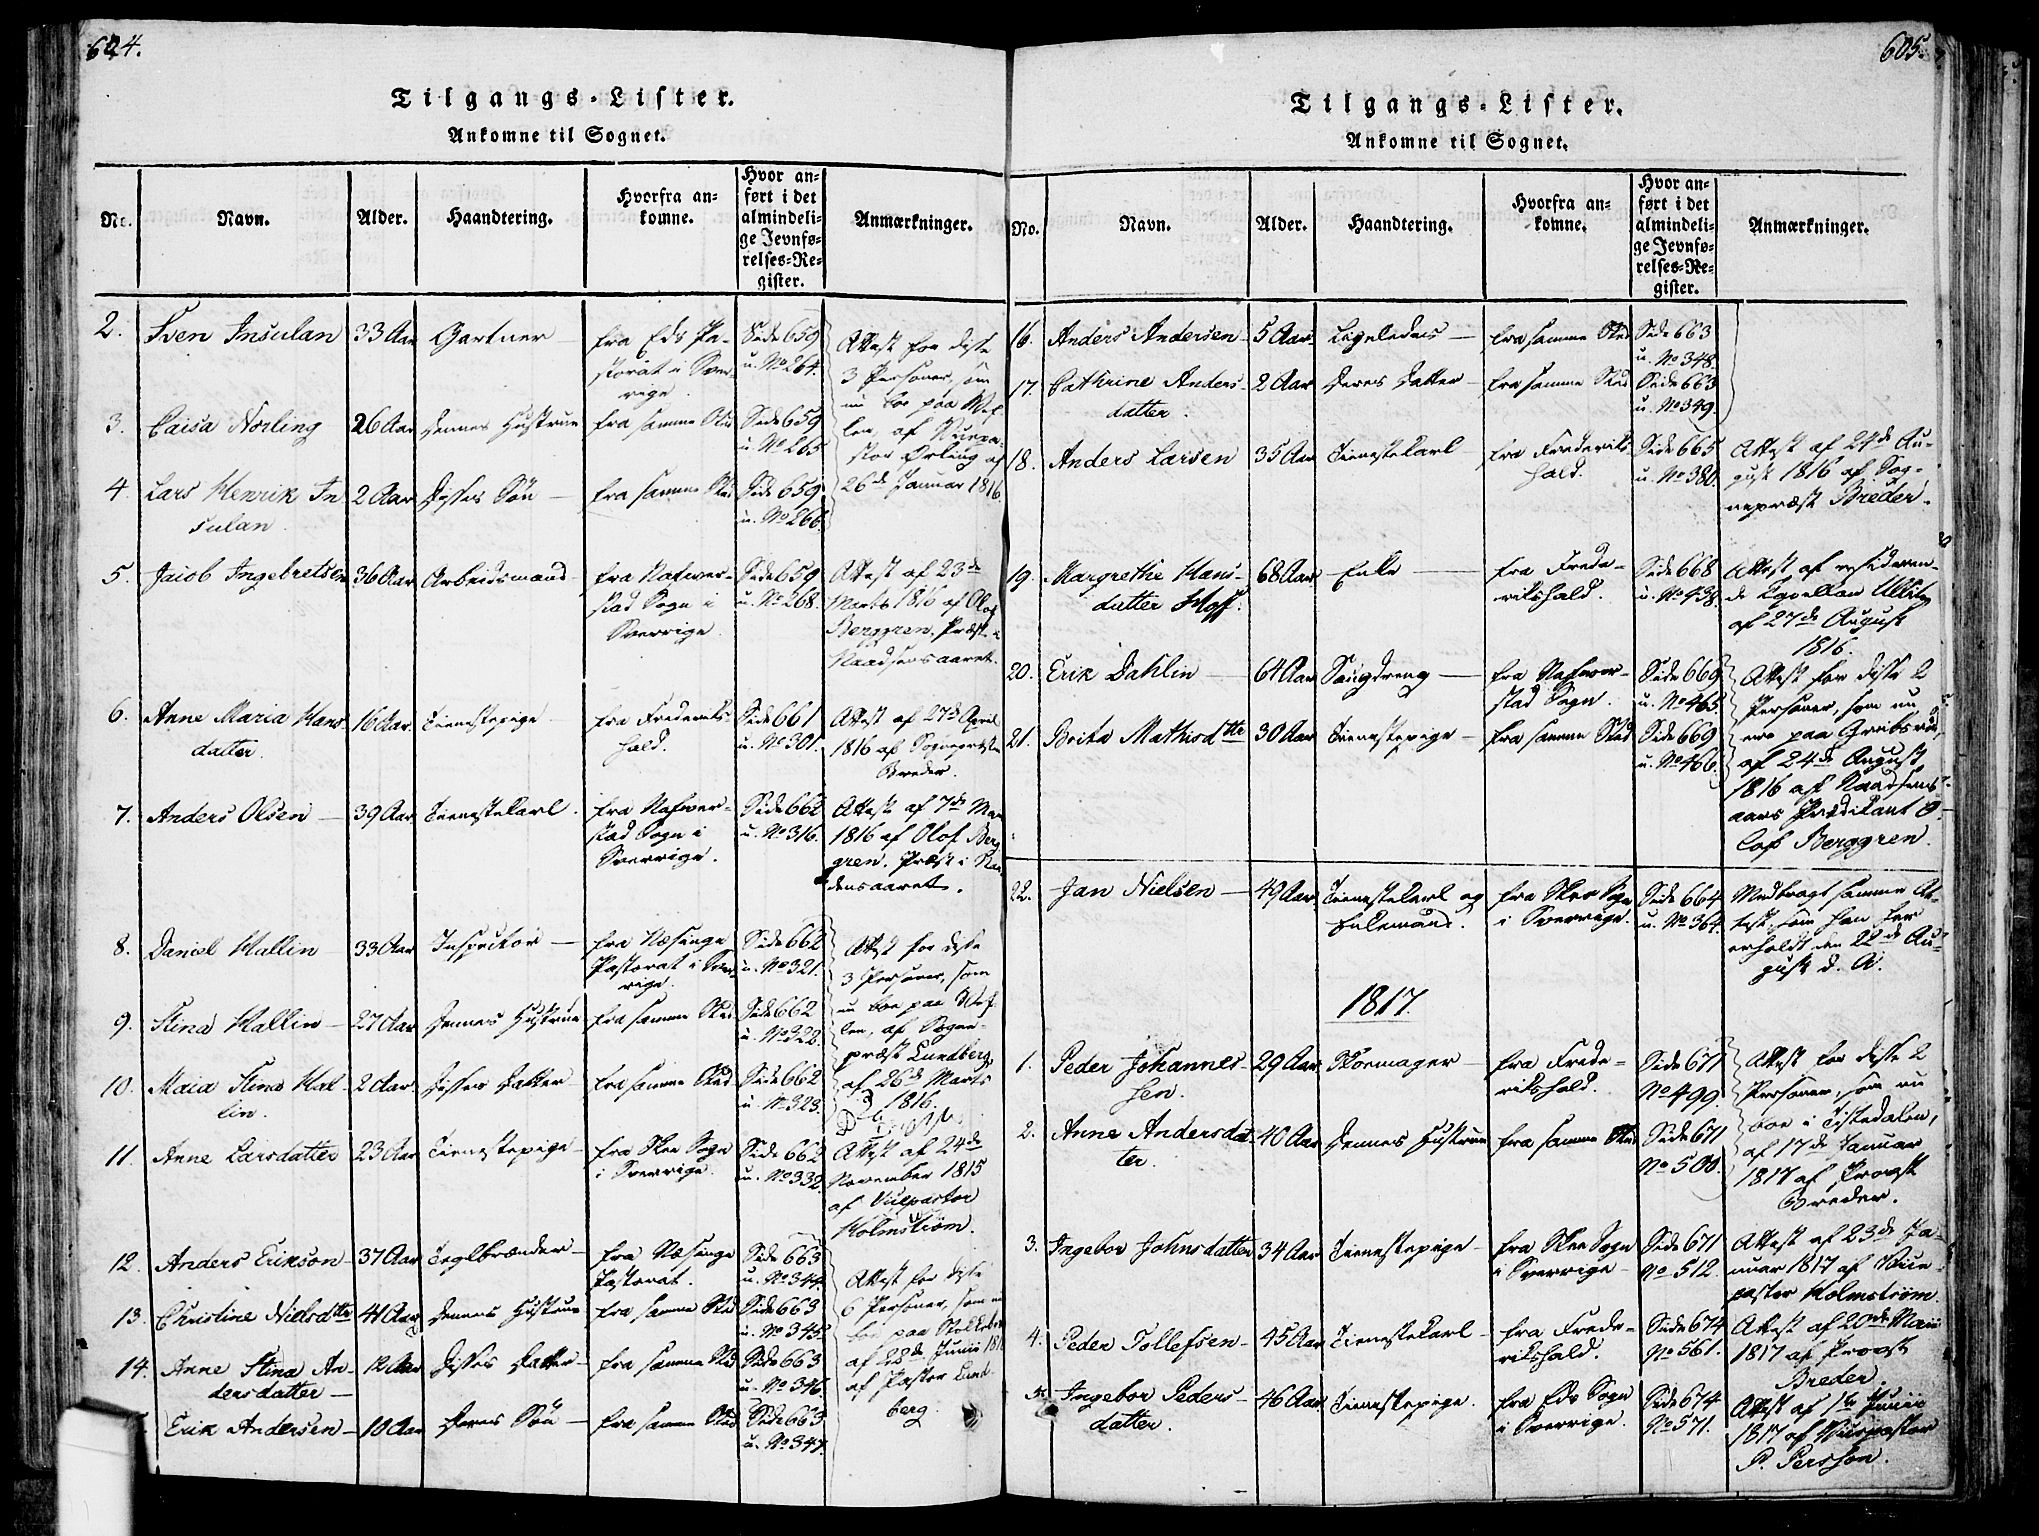 624.
Tilgangs-Lister.
Ankomne til Sognet.
No.
Navn.
Alder.
Haandtering.
Hvorfra an-
komne.
Hvor an-
ført i det
almindeli-
ge Jevnfø-
relses-Re-
gister.
Anmærkninger.
2. Sven Insulan 33 Aar Gartner fra Eds Pa-
storat i Sver-
rige. Side 659
u. No 264.
Attest for disse
3 Personer, som
nu boe paa
af
26de Januar 1816
3. Caisa Norling 26 Aar Dennes Hustrue fra samme Sted Side 659
u. No 265
4. Lars Henrik In
sulan. 2 Aar Disses Søn fra samme Sted Side 659.
u. No 266.
5. Jacob Ingebretsen 36 Aar Arbeidsmand fra Nafver-
stad Sogn i
Sverrige. Side 659
u. No 268.
Attest af 23de
Marts 1816 af Olof
Berggren, Præst i
Naadsensaaret.
6. Anne Maria Hans
datter. 16 Aar. Tienestepige fra Frederiks-
hald. Side 661
u. No 301.
Attest af 27de April
1816 af Sognepræsten
Breder.
7. Anders Olsen 39 Aar Tienestekarl. fra Nafver-
stad Sogn i
Sverrige. Side 662
u. No 316.
Attest af 7de Mai
1816 af Olof Berg
gren. Præst i Naa
densaaret.
8. Daniel Hallin 33 Aar Inspector fra Næsinge
Pastorat i Sver-
rige. Side 662
u. No 321.
Attest for disse
3 Personer, som
nu boe paa
af Sogne-
præst Lundberg
af 26de Marts
1816.
9. Stina Hallin 27 Aar Dennes Hustrue fra samme Sted Side 662
u. No 322.
10. Maia Stina Hal-
lin. 2 Aar Disses Datter fra samme Sted Side 662
u. No 323.
11. Anne Larsdatter 23 Aar Tienestepige fra Skee Sogn
i Sverrige. Side 662
u. No 332.
Attest af 24de
November 1815
af Vicepastor
Holmstrøm.
12. Anders Erikson 37 Aar Teglbrænder fra Næsinge
Pastorat. Side 663
u. No 344.
Attest for disse
6 Personer, som nu
boe paa
af 28de Junii 1816
af Pastor Lund-
berg.
13. Christine Nielsdttr 41 Aar Dennes Hustrue fra samme Sted Side 663
u. No 345.
14. Anne Stina An-
dersdatter 12 Aar Disses Datter fra samme Sted Side 663
u. No 346.
Erik Andersen 10 Aar Deres Søn fra samme Sted Side 663
u. No 347.
605.
Tilgangs-Lister.
Ankomne til Sognet.
No.
Navn.
Alder.
Haandtering.
Hvorfra an-
komne.
Hvor an-
ført i det
almindeli-
ge Jevnfø-
relses-Re-
gister.
Anmærkninger.
16. Anders Andersen 5 Aar Ligeledes fra samme Sted Side 663
u. No 348.
17. Cathrine Anders-
datter. 2 Aar Deres Datter fra samme Sted Side 663
u. No 349.
18. Anders Larsen 35 Aar Tienestekarl fra Frederiks
hald. Side 665
u. No 380.
Attest af 24de Au-
gust 1816 af Sog-
nepræst Breder.
19. Margrethe Hans-
datter Hoff. 68 Aar Enke fra Frede-
rikshald. Side 668
u. No 438.
Attest af resideren-
de Capellan
af 27de August
1816.
20. Erik Dahlin 64 Aar fra Nafver-
stad Sogn. Side 669
u. No 465.
Attest for disse 2
Personer, som nu
ere paa
af 24de August
1816 af Naadsens-
aars Prædikant O-
lof Berggren.
21. Brita Mathisdttr 30 Aar Tienestepige fra samme Sted Side 669
u. No 466.
22. Jan Nielsen 49 Aar Tienestekarl og
Enkemand. fra Skee Sogn
i Sverrige. Side 664
u. No 364.
Medbragt samme At-
test, som han har
erholdt den 22de Au-
gust d. A.
1817.
1. Peder Johannes-
sen. 29 Aar Skoemager fra Frede-
rikshald. Side 671
No 499.
Attest for disse 2
Personer, som nu
boe i Tistedalen,
af 17de Januar
1817 af Provst
Breder.
2. Anne Andersdat-
ter. 40 Aar Dennes Hustrue fra samme Sted Side 671
No 500.
3. Ingebor Johnsdatter 34 Aar Tienestepige fra Skee Sogn
i Sverrige Side 671
No 512.
Attest af 23de Ja-
nuar 1817 af Vice-
pastor Holmstrøm.
4. Peder Tollefsen 45 Aar Tienestekarl fra Frede-
rikshald. Side 674
No 561.
Attest af 20de Maii
1817 af Provst
Breder.
5. Ingebor Peders-
datter. 46 Aar Tienestepige. fra Eds Sogn
i Sverrige. Side 674
No 571.
Attest af 1te Junii
1817 af Vicepastor
P. Persson.